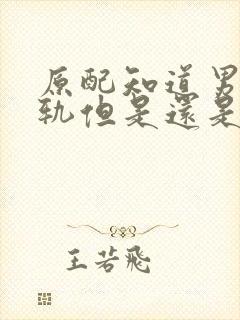 原配知道男
軌但是還是
王若飛